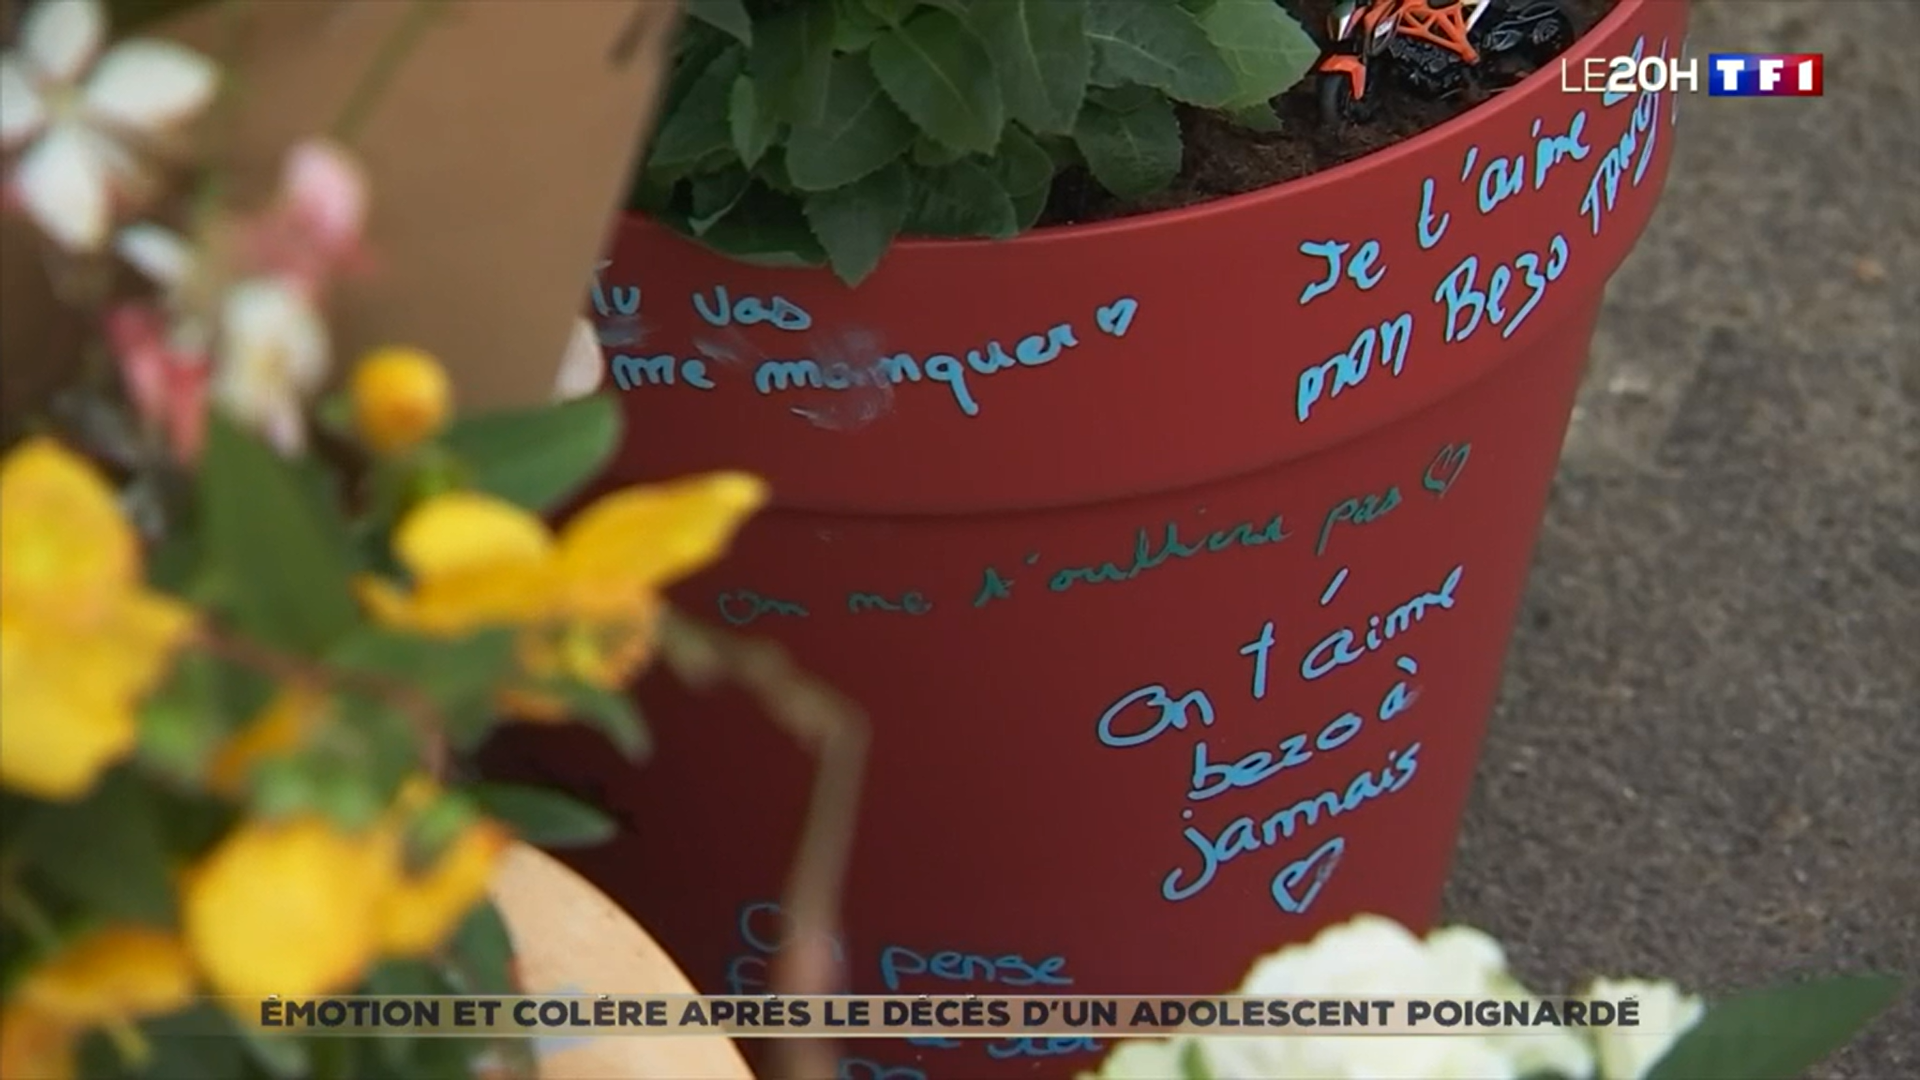 LE20H TF1
Je t'aime
mon Bezo
Tu vas
me manquer
On ne t'oubliera pas
On t'aime
bezo à
jamais
On pense
ÉMOTION ET COLÈRE APRÈS LE DÉCÈS D'UN ADOLESCENT POIGNARDÉ